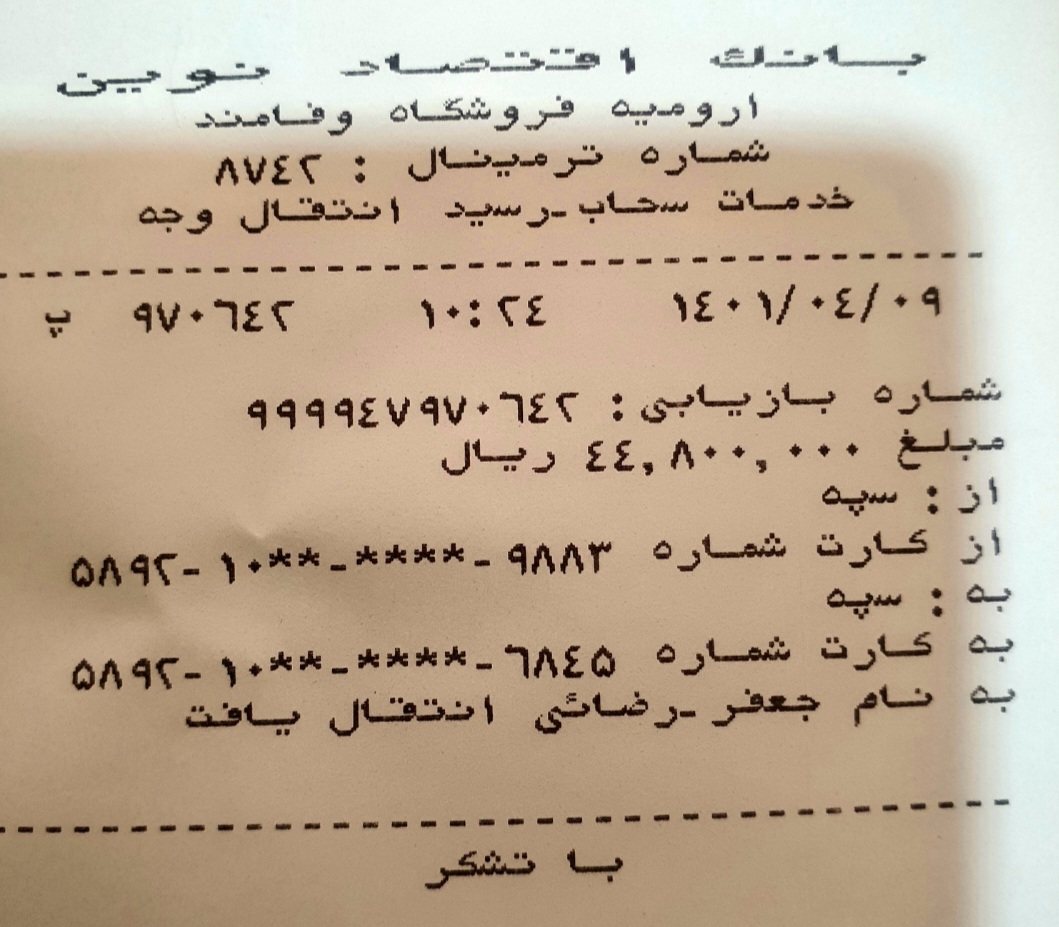 بانک اقتصاد نوین
ارومیه فروشگاه وفامند
شماره ترمینال : ۸۷٤۲
خدمات سحاب-رسید انتقال وجه
۱٤۰۱/۰٤/۰۹ ۱۰:۲٤ ۹۷۰٦٤۲ پ
شماره بازیابی: ۹۹۹۹٤۷۹۷۰٦٤۲
مبلغ ٤٤,۸۰۰,۰۰۰ ریال
از : سپه
از کارت شماره ۵۸۹۲-۱۰**-****-۹۸۸۳
به : سپه
به کارت شماره ۵۸۹۲-۱۰**-****-٦۸٤۵
به نام جعفر-رضائی انتقال یافت
با تشکر